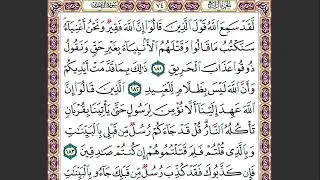 لَّقَدْ سَمِعَ ٱللَّهُ قَوْلَ ٱلَّذِينَ قَالُوٓا۟ إِنَّ ٱللَّهَ فَقِيرٌ وَنَحْنُ أَغْنِيَآءُ
سَنَكْتُبُ مَا قَالُوا۟ وَقَتْلَهُمُ ٱلْأَنۢبِيَآءَ بِغَيْرِ حَقٍّ وَنَقُولُ
ذُوقُوا۟ عَذَابَ ٱلْحَرِيقِ ١٨١ ذَٰلِكَ بِمَا قَدَّمَتْ أَيْدِيكُمْ
وَأَنَّ ٱللَّهَ لَيْسَ بِظَلَّامٍ لِّلْعَبِيدِ ١٨٢ ٱلَّذِينَ قَالُوٓا۟ إِنَّ
ٱللَّهَ عَهِدَ إِلَيْنَآ أَلَّا نُؤْمِنَ لِرَسُولٍ حَتَّىٰ يَأْتِيَنَا بِقُرْبَانٍ
تَأْكُلُهُ ٱلنَّارُ قُلْ قَدْ جَآءَكُمْ رُسُلٌ مِّن قَبْلِى بِٱلْبَيِّنَٰتِ
وَبِٱلَّذِى قُلْتُمْ فَلِمَ قَتَلْتُمُوهُمْ إِن كُنتُمْ صَٰدِقِينَ ١٨٣
فَإِن كَذَّبُوكَ فَقَدْ كُذِّبَ رُسُلٌ مِّن قَبْلِكَ جَآءُو بِٱلْبَيِّنَٰتِ